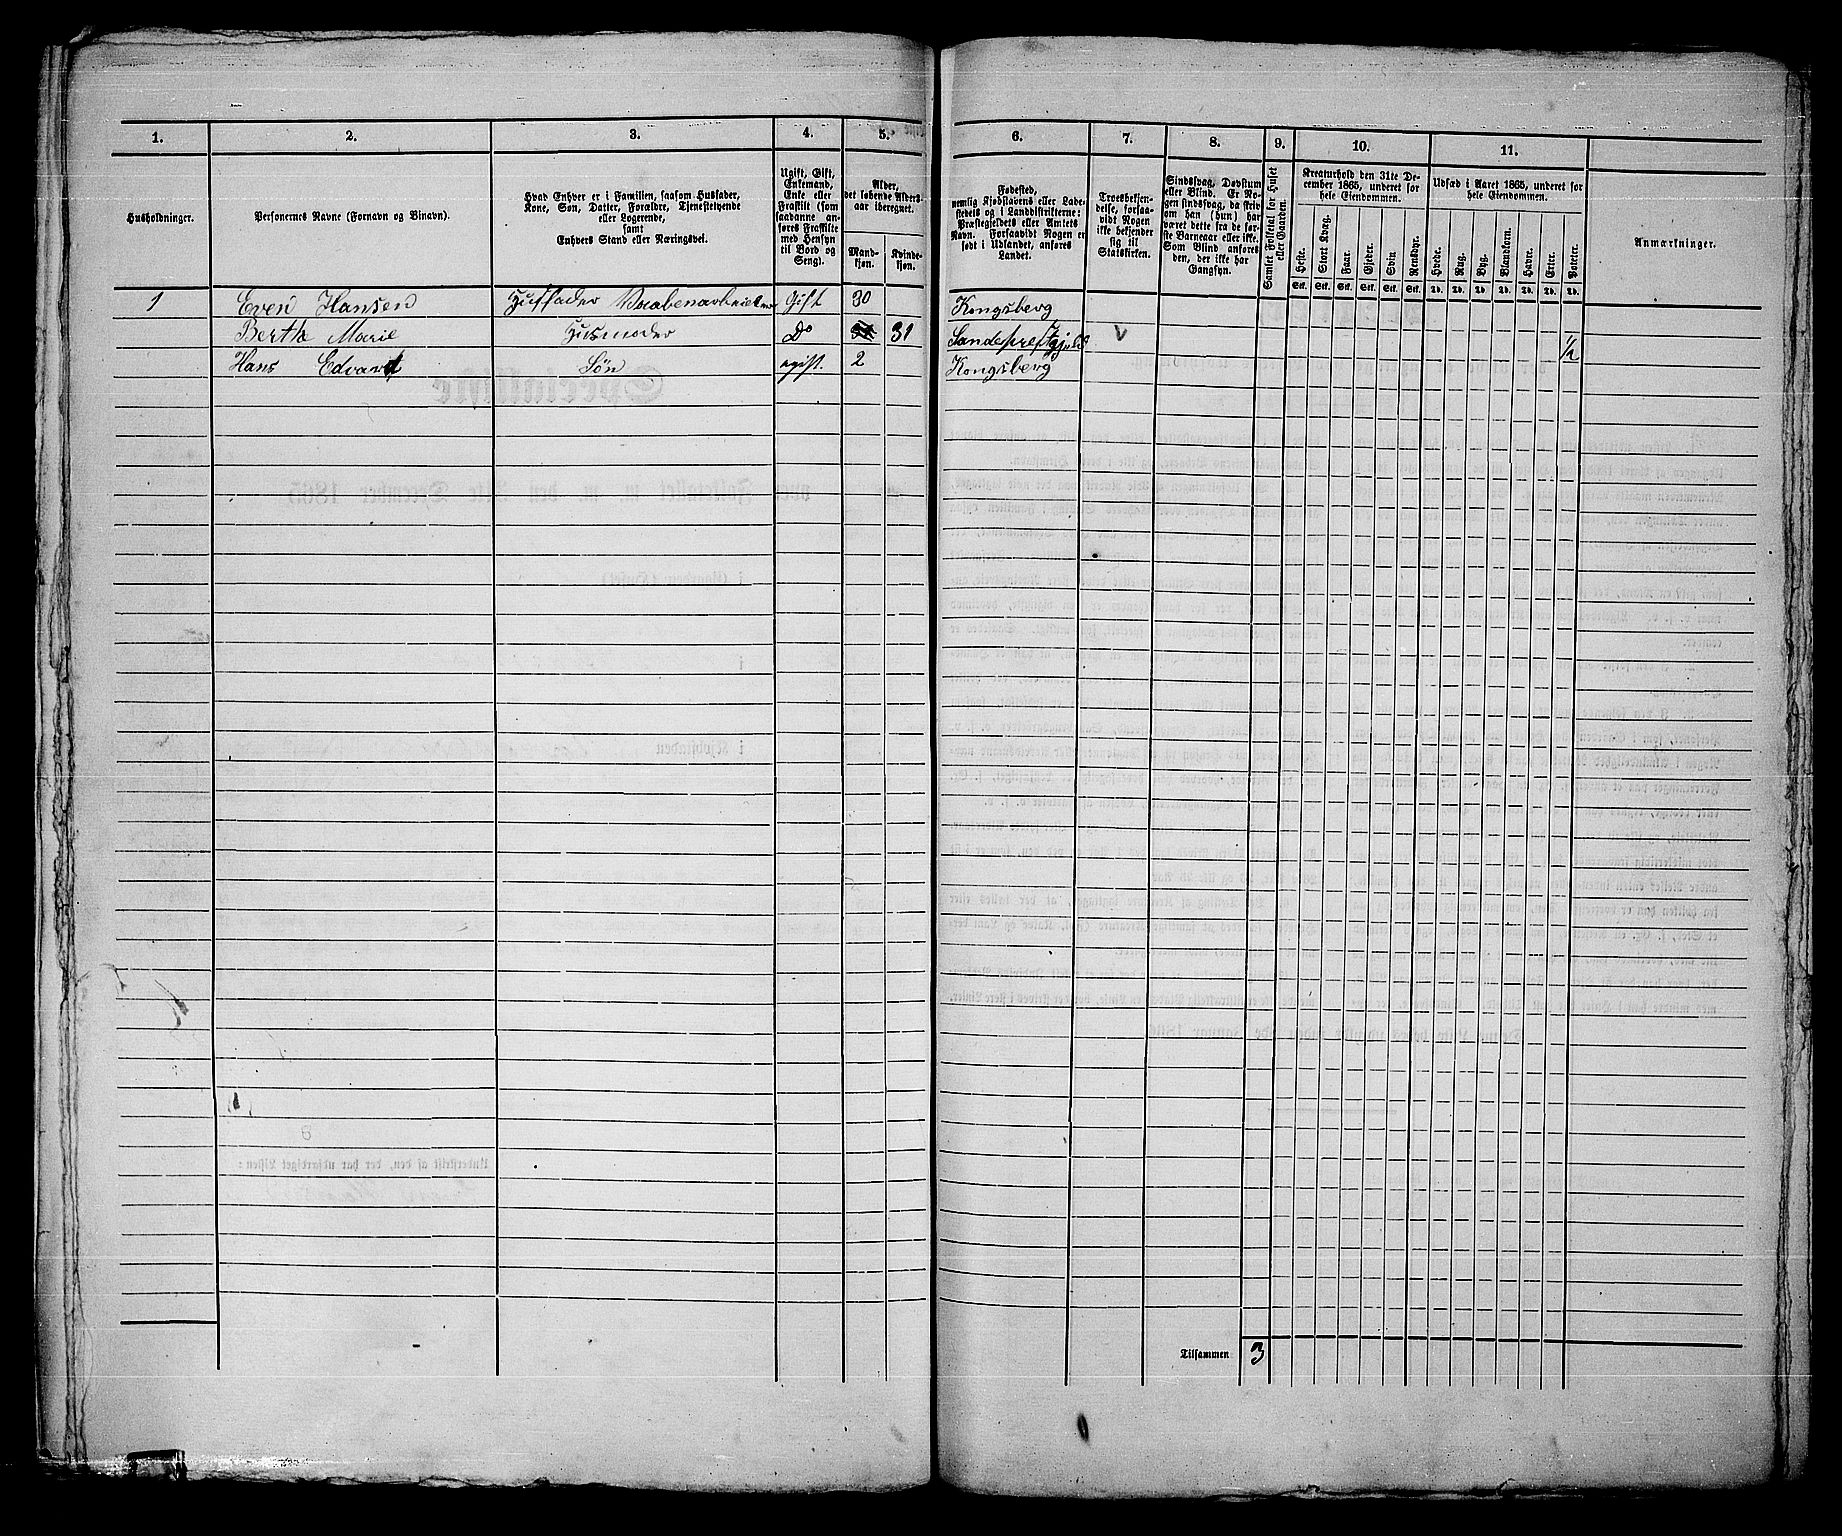 1. 2. 3. 4. 5. 6. 7. 8. 9. 10. 11.
Husholdninger.
Personernes Navne (Fornavn og Binavn).
Hvad Enhver er i Familien, saasom Husfader,
Kone, Søn, Datter, Forældre, Tjenestetyende
eller Logerende,
samt
Enhvers Stand eller Næringsvei.
Ugift, Gift,
Enkemand,
Enke eller
Fraskilt (som
saadanne an-
føres Fraskilte
med Hensyn
til Bord og
Seng).
Alder,
det løbende Alders-
aar iberegnet.
Mand-
kjøn.
Kvinde-
kjøn.
Fødested,
nemlig Kjøbstadens eller Lade-
stedets og i Landdistrikterne:
Præstegjeldets eller Amtets
Navn. Forsaavidt Nogen er
født i Udlandet, anføres
Landet.
Troesbekjen-
delse, forsaa-
vidt Nogen
ikke bekjender
sig til
Statskirken.
Sindssvag, Døvstum
eller Blind. Er No-
gen sindssvag, da skriv
om han (hun) har
været dette fra de før-
ste Barneaar eller ikke.
Som Blind anføres
den, der ikke har
Gangsyn.
Samlet Folketal for Huset
eller Gaarden.
Kreaturhold den 31te De-
cember 1865, underet for
hele Eiendommen.
Heste. Stort Kvæg. Faar. Gjeder. Svin Rensdyr.
Stk. Stk. Stk. Stk. Stk. Stk.
Udsæd i Aaret 1865, underet for
hele Eiendommen.
Hvede. Rug. Byg. Blandkorn. Havre. Erter. Poteter.
Td. Td. Td. Td. Td. Td. Td.
Anmærkninger.
1 Even Hansen Husfader Vaabenarbeider Gift 30 Kongsberg
Berthe Marie Husmoder Do 31 31 V 1/2
Hans Edvard Søn ugift. 2 Kongsberg
Tilsammen 3